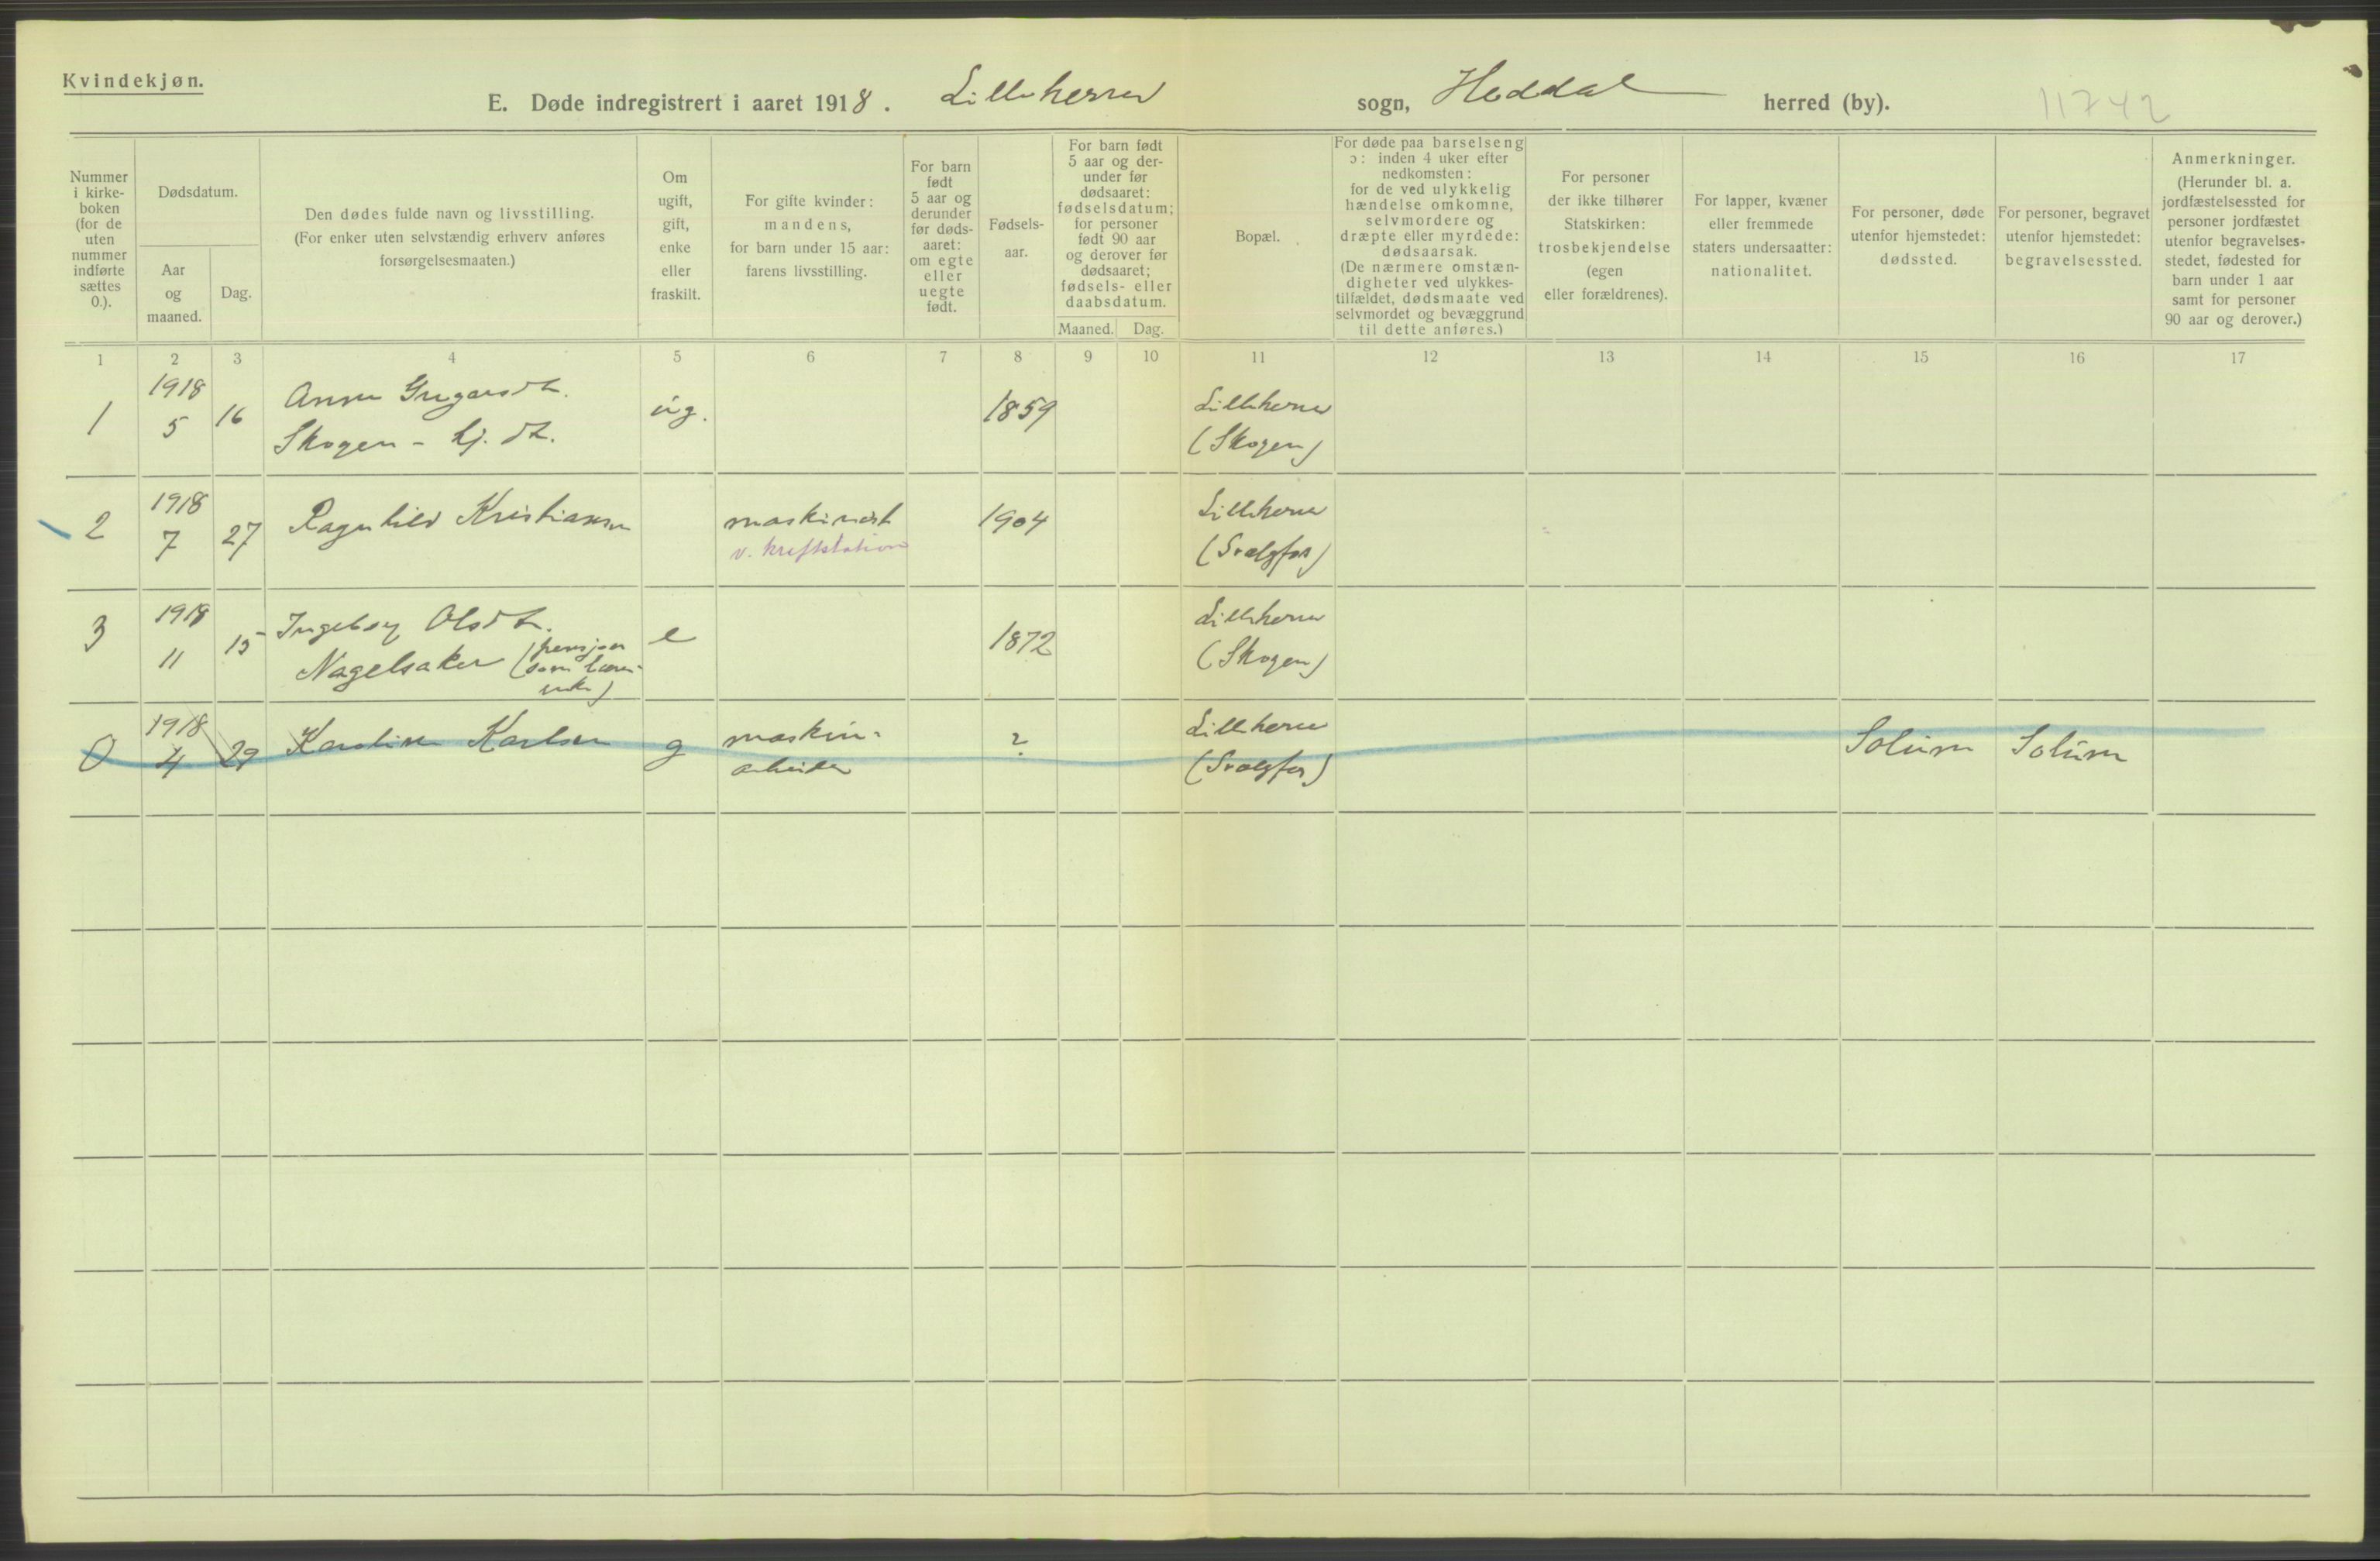 Kvindekjøn.
E. Døde indregistrert i aaret 1918. Lilleherred sogn, Heddal herred (by). 11742
Nummer i kirke-boken (for de uten nummer indførte sættes 0.).
Dødsdatum.
Aar og maaned.
Dag.
Den dødes fulde navn og livsstilling.
(For enker uten selvstændig erhverv anføres forsørgelsesmaaten.)
Om ugift, gift, enke eller fraskilt.
For gifte kvinder: mandens, for barn under 15 aar: farens livsstilling.
For barn født 5 aar og derunder før døds-aaret: om egte eller uegte født.
Fødsels-aar.
For barn født 5 aar og der-under før dødsaaret: fødselsdatum; for personer født 90 aar og derover før dødsaaret; fødsels- eller daabsdatum.
Maaned. Dag.
Bopæl.
For døde paa barselseng ɔ: inden 4 uker efter nedkomsten: for de ved ulykkelig hændelse omkomne, selvmordere og dræpte eller myrdede: dødsaarsak.
(De nærmere omstæn-digheter ved ulykkes-tilfældet, dødsmaate ved selvmordet og bevæggrund til dette anføres.)
For personer der ikke tilhører Statskirken: trosbekjendelse (egen eller forældrenes).
For lapper, kvæner eller fremmede staters undersaatter: nationalitet.
For personer, døde utenfor hjemstedet: dødssted.
For personer, begravet utenfor hjemstedet: begravelsessted.
Anmerkninger.
(Herunder bl. a. jordfæstelsessted for personer jordfæstet utenfor begravelses-stedet, fødested for barn under 1 aar samt for personer 90 aar og derover.)
1 2 3 4 5 6 7 8 9 10 11 12 13 14 15 16 17
1 1918 5 16 Anne Gregarsdt. ug. 1859 Lilleherred
Skogen - (Skogen)
2 1918 7 27 Ragnhild Kristiansen maskinist 1904 Lilleherred
v. kraftstation (Svælgfos)
3 1918 11 15 Ingeborg Olsdt. e 1872 Lilleherred
Nagelsaker (pensjon som (Skogen)
enke)
0 1918 4 29 Karoline Karlsen g maskin- ? Lilleherred Solum Solum
arbeider (Svælgfos)